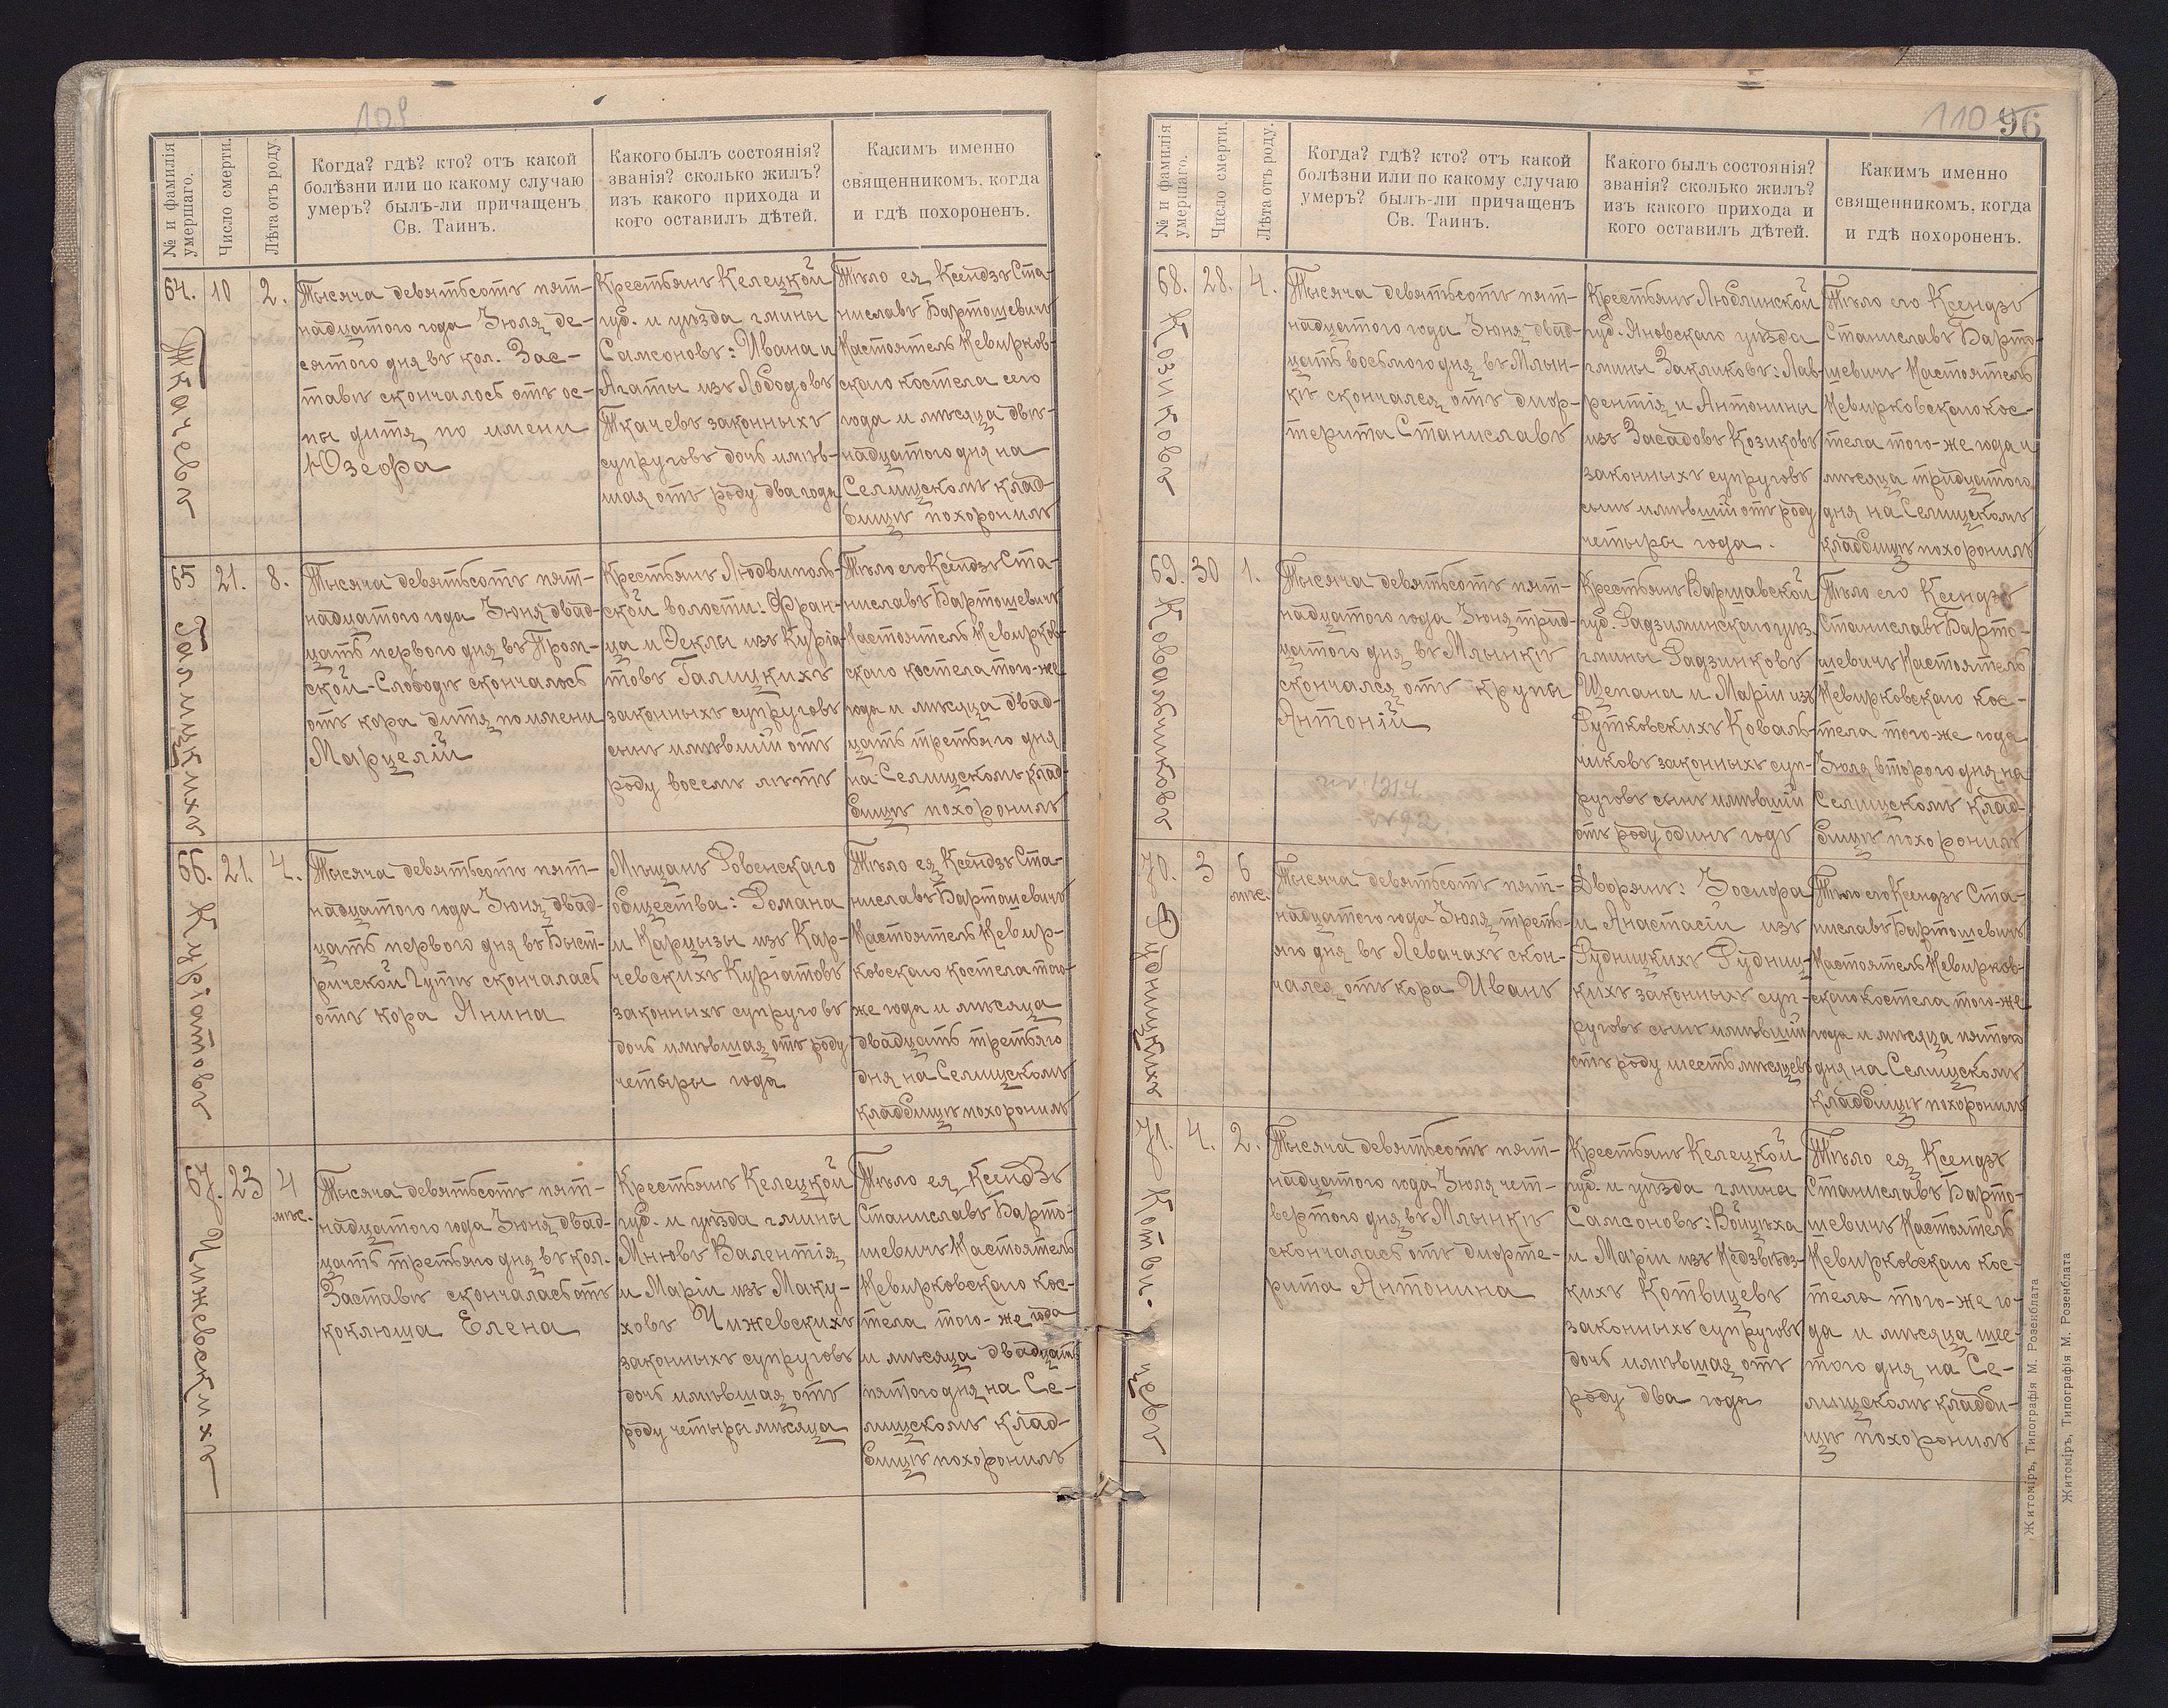 109
№ и фамилія умершаго.
Число смерти.
Лѣта отъ роду.
Когда? гдѣ? кто? отъ какой
болѣзни или по какому случаю
умеръ? былъ-ли причащенъ
Св. Таинъ.
Какого былъ состоянія?
званія? сколько жилъ?
изъ какого прихода и
кого оставилъ дѣтей.
Какимъ именно
священникомъ, когда
и гдѣ похороненъ.
64. 10 2.
Ткачевъ
Тысяча девятьсотъ пят-
надцатого года Іюля де-
сятого дня въ кол. Зас-
тавѣ скончалось отъ ос-
пы дитя по имени
Юзефа
Крестьянъ Келецкой
губ. и уѣзда гмины
Самсоновъ: Ивана и
Агаты изъ Лободовъ
Ткачевъ законныхъ
супруговъ дочь имѣв-
шая отъ роду два года
Тѣло ея Ксендзъ Ста-
ниславъ Бартошевичъ
Настоятель Невирков-
скаго костела сего
года и мѣсяца двѣ-
надцатого дня на
Селищскомъ клад-
бищѣ похоронилъ
65 21. 8.
Галицкихъ
Тысяча девятьсотъ пят-
надцатого года Іюня двад-
цать первого дня въ Пром-
ской-Слободѣ скончалось
отъ кора дитя по имени
Марцелій
Крестьянъ Людвиполь-
ской волости: Фран-
ца и Феклы изъ Куріа-
товъ Галицкихъ
законныхъ супруговъ
сынъ имѣвшій отъ
роду восемь лѣтъ
Тѣло его Ксендзъ Ста-
ниславъ Бартошевичъ
Настоятель Невирков-
скаго костела того-же
года и мѣсяца двад-
цать третьяго дня
на Селищскомъ клад-
бищѣ похоронилъ
66. 21. 4.
Куріатовъ
Тысяча девятьсотъ пят-
надцатого года Іюня двад-
цать первого дня въ Быст-
ричской Гутѣ скончалась
отъ кора Янина
Мѣщанъ Ровенскаго
общества: Романа
и Нарцызы изъ Кар-
чевскихъ Куріатовъ
законныхъ супруговъ
дочь имѣвшая отъ роду
четыры года
Тѣло ея Ксендзъ Ста-
ниславъ Бартошевичъ
Настоятель Невир-
ковскаго костела того-
же года и мѣсяца
двадцать третьяго
дня на Селищскомъ
кладбищѣ похоронилъ
67. 23 4 мѣс.
Чижевскихъ
Тысяча девятьсотъ пят-
надцатого года Іюня двад-
цать третьяго дня въ кол.
Заставѣ скончалась отъ
коклюша Елена
Крестьянъ Келецкой
губ. и уѣзда гмины
Мнювъ Валентія
и Маріи изъ Маку-
ховъ Чижевскихъ
законныхъ супруговъ
дочь имѣвшая отъ
роду четыры мѣсяца
Тѣло ея Ксендзъ
Станиславъ Барто-
шевичъ Настоятель
Невирковскаго кос-
тела того-же года
и мѣсяца двадцать
пятого дня на Се-
лищскомъ клад-
бищѣ похоронилъ
110 96
№ и фамилія умершаго.
Число смерти.
Лѣта отъ роду.
Когда? гдѣ? кто? отъ какой
болѣзни или по какому случаю
умеръ? былъ-ли причащенъ
Св. Таинъ.
Какого былъ состоянія?
званія? сколько жилъ?
изъ какого прихода и
кого оставилъ дѣтей.
Какимъ именно
священникомъ, когда
и гдѣ похороненъ.
68. 28. 4.
Козиковъ
Тысяча девятьсотъ пят-
надцатого года Іюня двад-
цать восьмого дня въ Млын-
кѣ скончался отъ диф-
терита Станиславъ
Крестьянъ Люблинской
губ. Яновскаго уѣзда
гмины Закликовъ: Лав-
рентія и Антонины
изъ Засадовъ Козиковъ
законныхъ супруговъ
сынъ имѣвшій отъ роду
четыры года.
Тѣло его Ксендзъ
Станиславъ Барто-
шевичъ Настоятель
Невирковскаго кос-
тела того-же года и
мѣсяца тридцатого
дня на Селищскомъ
кладбищѣ похоронилъ
69. 30 1.
Ковальчиковъ
Тысяча девятьсотъ пят-
надцатого года Іюня трид-
цатого дня въ Млынкѣ
скончался отъ крупы
Антоній
Крестьянъ Варшавской
губ. Радзиминскаго уѣз.
гмины Радзинковъ
Щепана и Маріи изъ
Рутковскихъ Коваль-
чиковъ законныхъ суп-
руговъ сынъ имѣвшій
отъ роду одинъ годъ
Тѣло его Ксендзъ
Станиславъ Барто-
шевичъ Настоятель
Невирковскаго кос-
тела того-же года
Іюля второго дня на
Селищскомъ клад-
бищѣ похоронилъ
70. 3 6 мѣс.
Рудницкихъ
Тысяча девятьсотъ пят-
надцатого года Іюля треть-
яго дня въ Левачахъ скон-
чался отъ кора Иванъ
Дворянъ: Іосифа
и Анастасіи изъ
Рудницкихъ Рудниц-
кихъ законныхъ суп-
руговъ сынъ имѣвшій
отъ роду шесть мѣсяцевъ
Тѣло его Ксендзъ Ста-
ниславъ Бартошевичъ
Настоятель Невирков-
скаго костела того-же
года и мѣсяца пятого
дня на Селищскомъ
кладбищѣ похоронилъ
71. 4. 2.
Котви-цевъ
Тысяча девятьсотъ пят-
надцатого года Іюля чет-
вертого дня въ Млынкѣ
скончалась отъ дифте-
рита Антонина
Крестьянъ Келецкой
губ. и уѣзда гмины
Самсоновъ: Войцѣха
и Маріи изъ Недзвѣдз-
кихъ Котвицевъ
законныхъ супруговъ
дочь имѣвшая отъ
роду два года
Тѣло ея Ксендзъ
Станиславъ Барто-
шевичъ Настоятель
Невирковскаго кос-
тела того-же го-
да и мѣсяца шес-
того дня на Се-
лищскомъ кладби-
щѣ похоронилъ
Житоміръ, Типографія М. Розенблата
Житоміръ, Типографія М. Розенблата